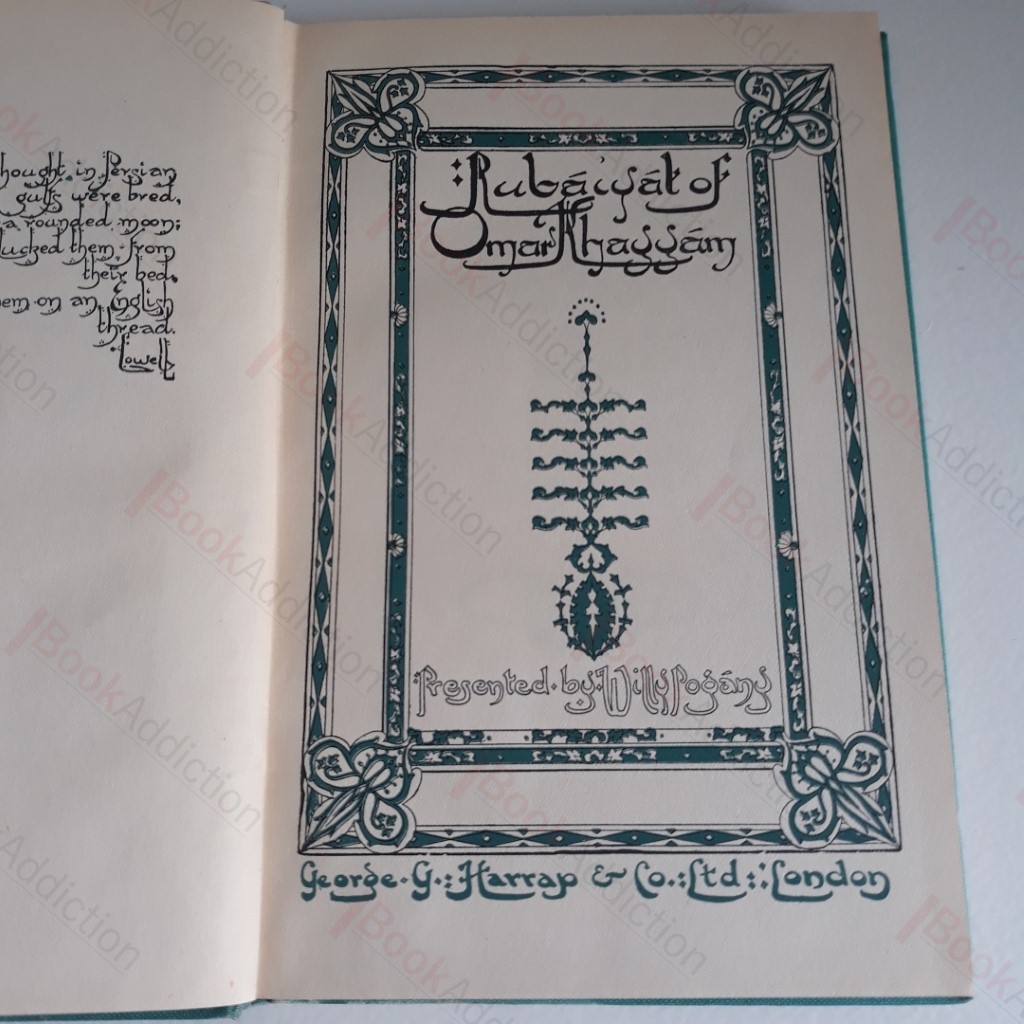 hought in Persian
gulfs were bred,
a rounded moon;
lucked them from
their bed,
em on an English
thread.
Lowell
Rubáiyát of
Omar Khayyám
Presented by Willy Pogány
George G. Harrap & Co. Ltd. London
BookAddiction